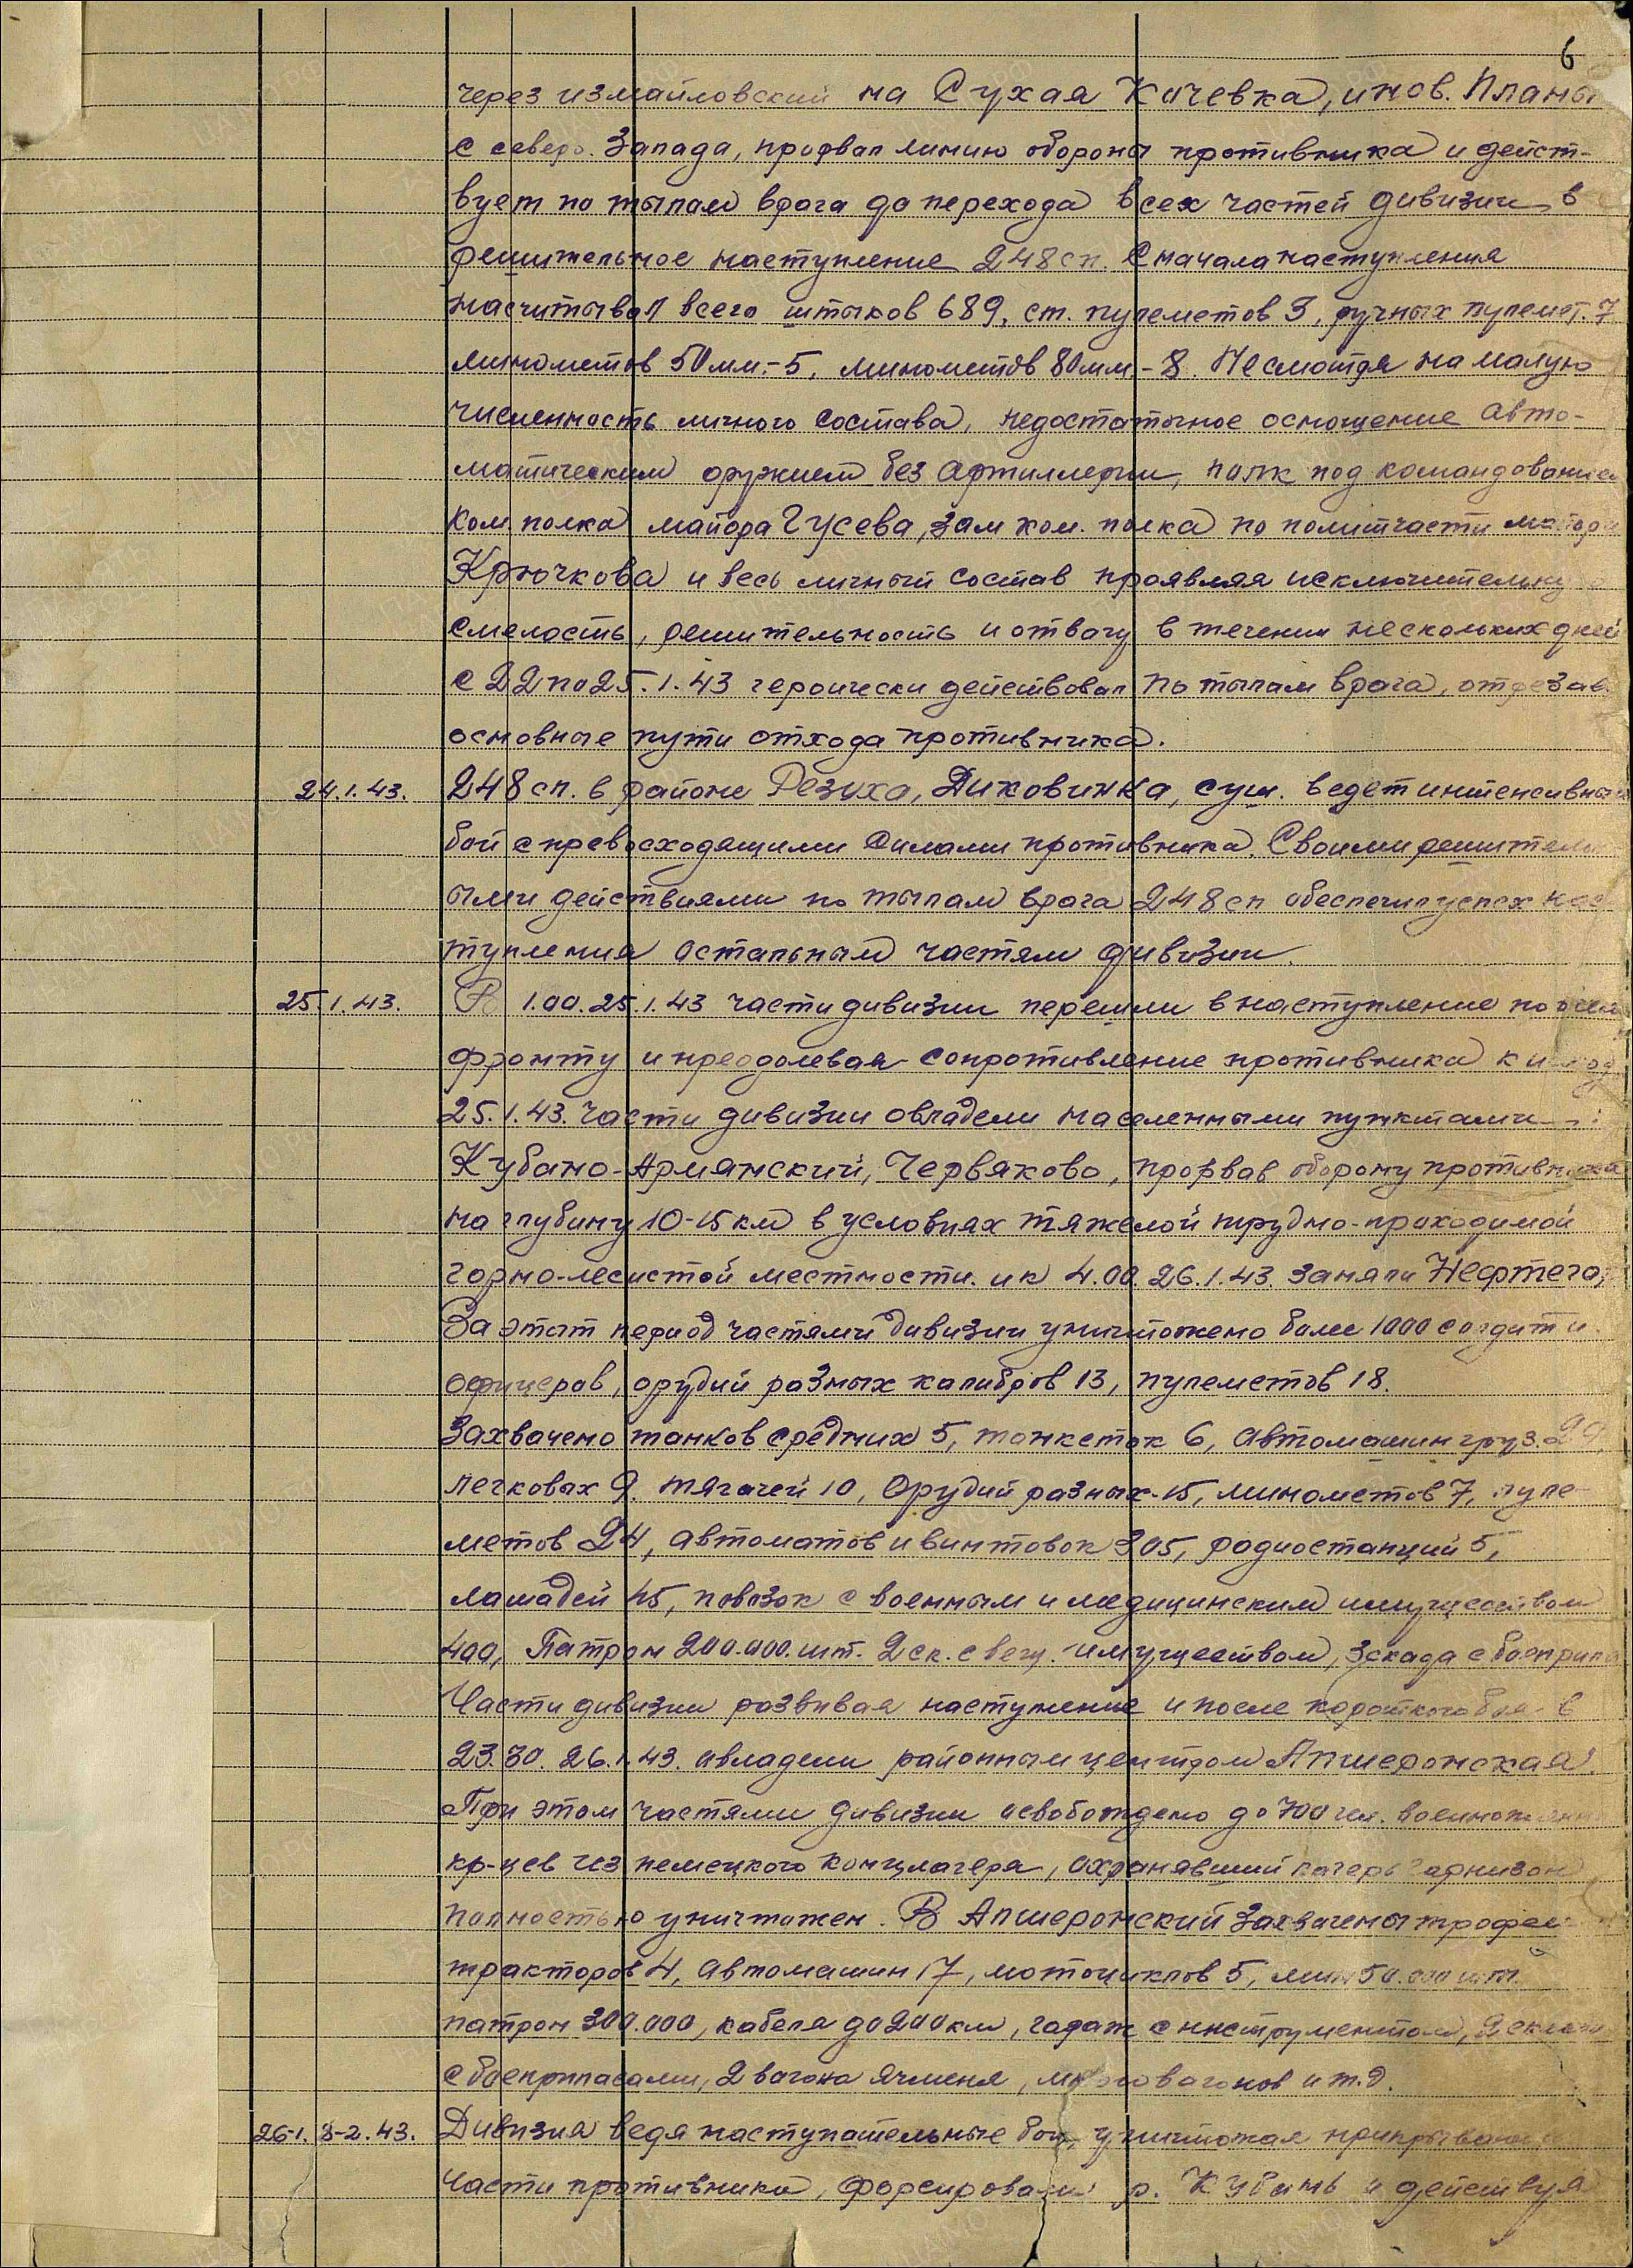 6
через измайловский на Сухая Качевка, и нов. Планы
с северо. Запада, прорвал линию обороны противника и дейст-
вует по тылам врага до перехода всех частей дивизии в
решительное наступление 248 сп. С начала наступления
насчитывал всего штыков 689, ст. пулеметов 3, ручных пулемет. 7
минометов 50мм.-5, минометов 80мм.-8. Несмотря на малую
численность личного состава, недостаточное оснощение авто-
матическим оружием без артиллерии, полк под командованием
Ком. полка майора Гусева, зам ком. полка по политчасти майора
Крючкова и весь личный состав проявляя исключительную
смелость, решительность и отвагу в течении нескольких дней
с 22 по 25.1.43 героически действовал по тылам врага, отрезав
основные пути отхода противника.
24.1.43. 248 сп. в районе Резиха, Диковинка, суш. ведет интенсивный
бой с превосходящими силами противника. Своими решительн
ыми действиями по тылам врага 248 сп обеспечил успех нас
тупления остальным частям дивизии.
25.1.43. В 1.00. 25.1.43 части дивизии перешли в наступление по всему
фронту и преодолевая сопротивление противника к
25.1.43. части дивизии овладели населенными пунктами
Кубано-Армянский, Червяково, прорвав оборону противника
на глубину 10-15 км в условиях тяжелой трудно-проходимой
горно-лесистой местности. и к 4.00. 26.1.43. заняли Нефтего
За этот период частями дивизии уничтожено более 1000 солдат и
офицеров, орудий разных калибров 13, пулеметов 18.
Захвачено танков средних 5, танкеток 6, автомашин груз.
легковых 9. тягачей 10, Орудий разных-15, минометов 7, пуле-
метов 24, автоматов и винтовок 305, радиостанций 5,
лашадей 45, повозок с военным и медицинским имуществом
400, Патрон 200.000. шт. 2 ск. с вещ. имуществом, 3 склада с боеприпа
Части дивизии развивая наступление и после короткого боя в
23.30. 26.1.43. овладели районным центром Апшеронская.
При этом частями дивизии освобождено до 700 чел. военнопленных
кр-цев из немецкого концлагеря, охранявший лагерь гарнизон
полностью уничтожен. В Апшеронский захвачены трофеи
тракторов 4, автомашин 17, мотоциклов 5, мин 50.000 шт.
патрон 300.000, кабеля до 200 км, гараж с инструментом, 2 склада
с боеприпасами, 2 вагона ячменя, много вагонов и т.д.
26-1. 8-2.43. Дивизия ведя наступательные бои, уничтожая
части противника, форсировали р. Кубань и действуя